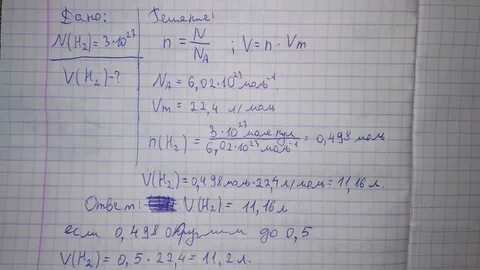 Дано:
N(H₂)=3·10²³
V(H₂)-?
Решение:
n = N/N_A ; V=n·Vm
N_A = 6,02·10²³ моль⁻¹
Vm = 22,4 л/моль
n(H₂) = 3·10²³ молекул / 6,02·10²³ моль⁻¹ = 0,498 моль
V(H₂)=0,498 моль·22,4 л/моль = 11,16 л.
Ответ: V(H₂) = 11,16 л
если 0,498 округлим до 0,5
V(H₂) = 0,5·22,4 = 11,2 л.